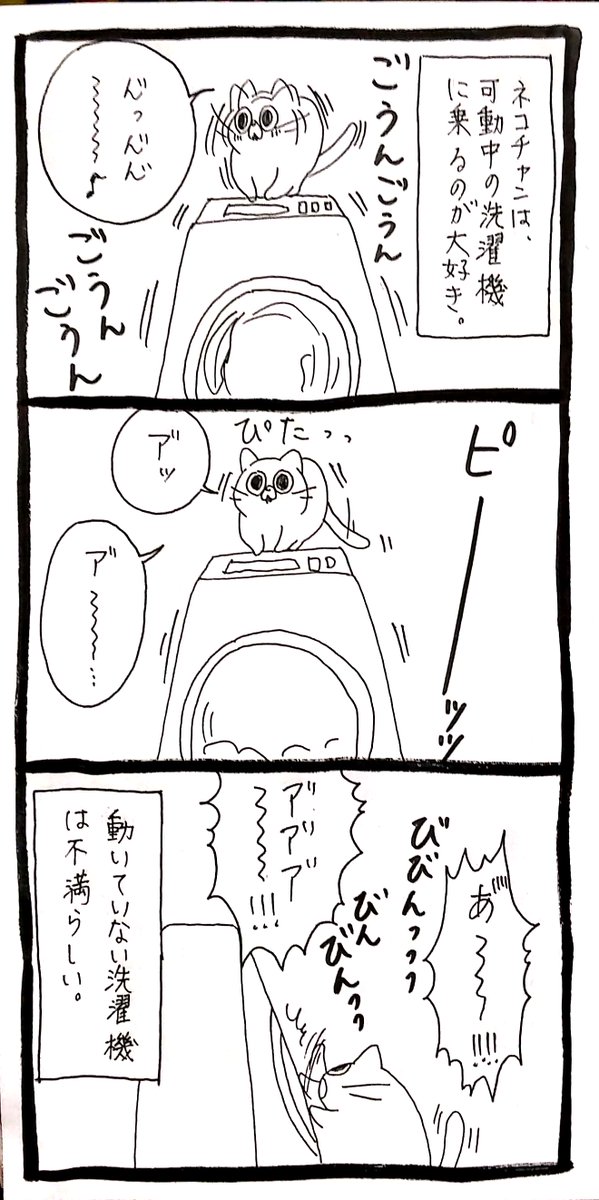 ネコチャンは、
可動中の洗濯機
に乗るのが大好き。
ごうんごうん
ん゛っん゛ん゛
〜〜〜〜♪
ごうん
ごうん
ピーッッ
ぴたっっ
ア゛ッ
ア゛〜〜〜…
あ゛〜〜〜!!!!
びびんっっっ
びん
びんっっ
ア゛ア゛ア゛
〜〜〜!!!
動いていない洗濯機
は不満らしい。